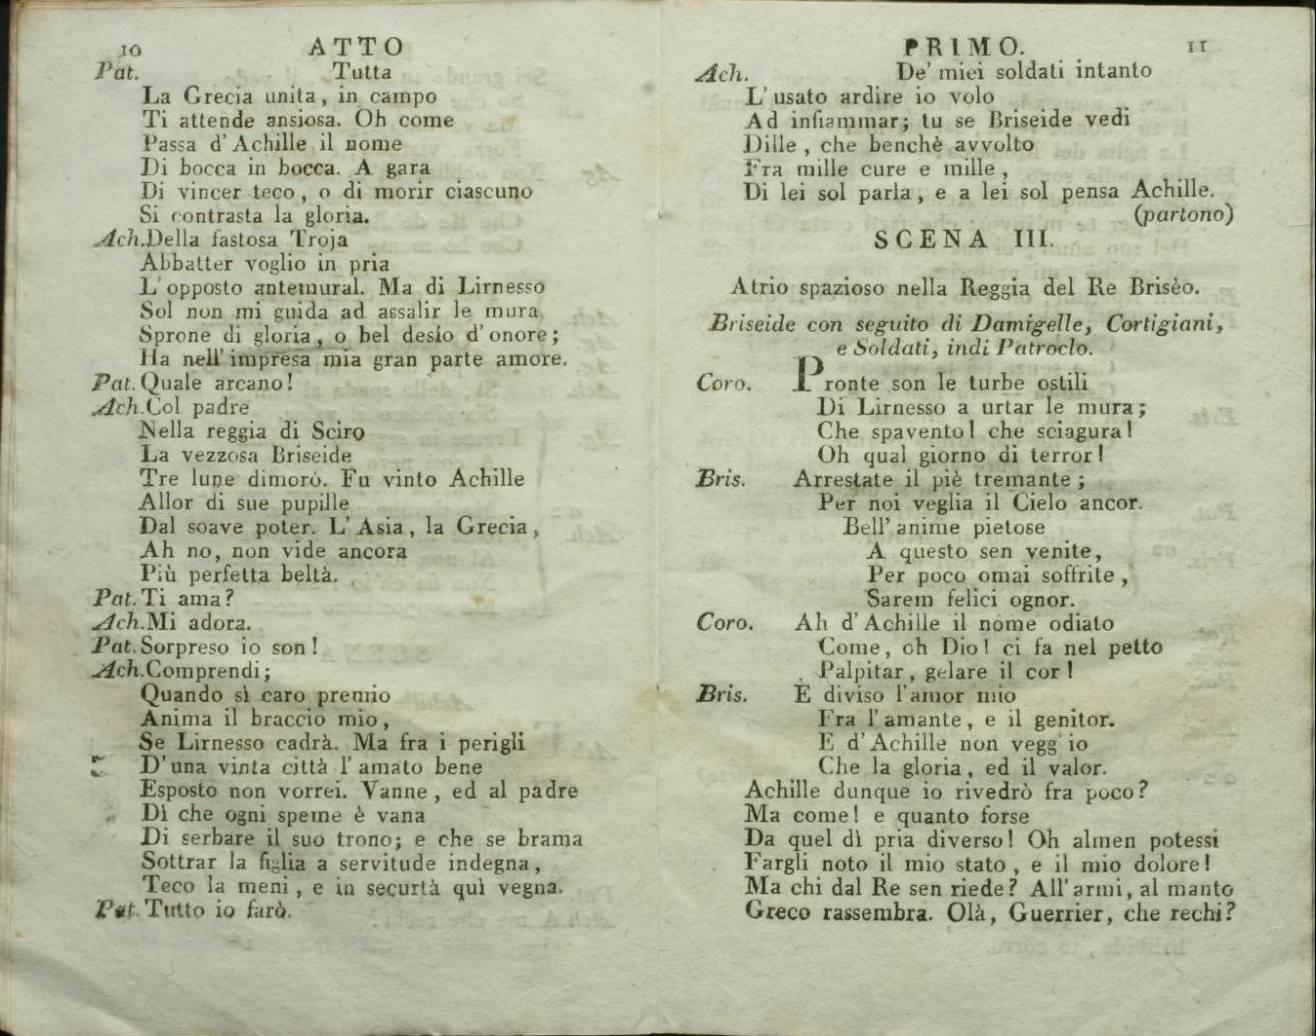 10 ATTO
Pat. Tutta
La Grecia unita, in campo
Ti attende ansiosa. Oh come
Passa d'Achille il nome
Di bocca in bocca. A gara
Di vincer teco, o di morir ciascuno
Si contrasta la gloria.
Ach. Della fastosa Troja
Abbatter voglio in pria
L'opposto antemural. Ma di Lirnesso
Sol non mi guida ad assalir le mura
Sprone di gloria, o bel desio d'onore;
Ha nell'impresa mia gran parte amore.
Pat. Quale arcano!
Ach. Col padre
Nella reggia di Sciro
La vezzosa Briseide
Tre lune dimorò. Fu vinto Achille
Allor di sue pupille
Dal soave poter. L'Asia, la Grecia,
Ah no, non vide ancora
Più perfetta beltà.
Pat. Ti ama?
Ach. Mi adora.
Pat. Sorpreso io son!
Ach. Comprendi;
Quando sì caro premio
Anima il braccio mio,
Se Lirnesso cadrà. Ma fra i perigli
D'una vinta città l'amato bene
Esposto non vorrei. Vanne, ed al padre
Dì che ogni speme è vana
Di serbare il suo trono; e che se brama
Sottrar la figlia a servitude indegna,
Teco la meni, e in securtà quì vegna.
Pat. Tutto io farò.
PRIMO. 11
Ach. De' miei soldati intanto
L'usato ardire io volo
Ad infiammar; tu se Briseide vedi
Dille, che benchè avvolto
Fra mille cure e mille,
Di lei sol parla, e a lei sol pensa Achille.
(partono)
SCENA III.
Atrio spazioso nella Reggia del Re Brisèo.
Briseide con seguito di Damigelle, Cortigiani,
e Soldati, indi Patroclo.
Coro. Pronte son le turbe ostili
Di Lirnesso a urtar le mura;
Che spavento! che sciagura!
Oh qual giorno di terror!
Bris. Arrestate il piè tremante;
Per noi veglia il Cielo ancor.
Bell'anime pietose
A questo sen venite,
Per poco omai soffrite,
Sarem felici ognor.
Coro. Ah d'Achille il nome odiato
Come, oh Dio! ci fa nel petto
Palpitar, gelare il cor!
Bris. E diviso l'amor mio
Fra l'amante, e il genitor.
E d'Achille non vegg'io
Che la gloria, ed il valor.
Achille dunque io rivedrò fra poco?
Ma come! e quanto forse
Da quel dì pria diverso! Oh almen potessi
Fargli noto il mio stato, e il mio dolore!
Ma chi dal Re sen riede? All'armi, al manto
Greco rassembra. Olà, Guerrier, che rechi?